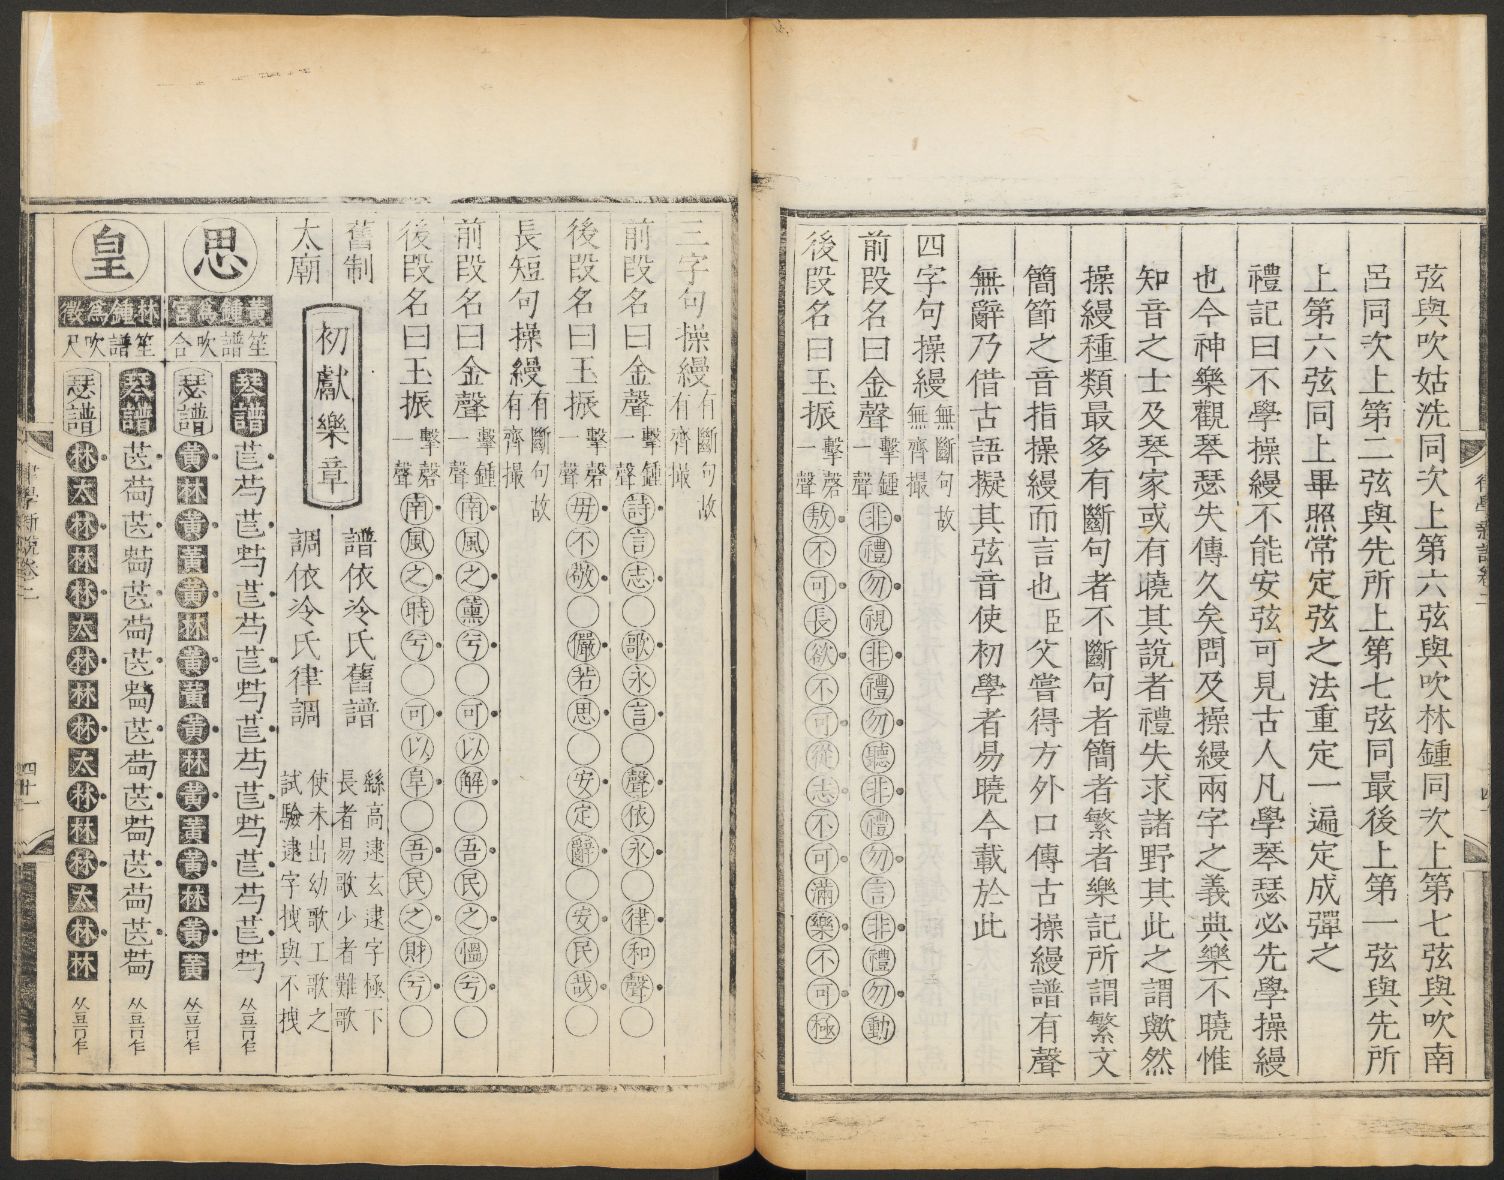 弦與吹姑洗同次上第六弦與吹林鍾同次上第七弦與吹南
呂同次上第二弦與先所上第七弦同最後上第一弦與先所
上第六弦同上畢照常定弦之法重定一遍定成彈之
禮記曰不學操縵不能安弦可見古人凡學琴瑟必先學操縵
也今神樂觀琴瑟失傳久矣問及操縵兩字之義典樂不曉惟
知音之士及琴家或有曉其說者禮失求諸野其此之謂歟然
操縵種類最多有斷句者不斷句者簡者繁者樂記所謂繁文
簡節之音指操縵而言也臣父嘗得方外口傳古操縵譜有聲
無辭乃借古語擬其弦音使初學者易曉今載於此
四字句操縵無斷句故無齊撮
前段名曰金聲擊鍾一聲非禮勿視非禮勿聽非禮勿言非禮勿動
後段名曰玉振擊磬一聲敖不可長欲不可從志不可滿樂不可極
三字句操縵有斷句故有齊撮
前段名曰金聲擊鍾一聲詩言志〇歌永言〇聲依永〇律和聲〇
後段名曰玉振擊磬一聲毋不敬〇儼若思〇安定辭〇安民哉〇
長短句操縵有斷句故有齊撮
前段名曰金聲擊鍾一聲南風之薰兮〇可以解〇吾民之慍兮〇
後段名曰玉振擊磬一聲南風之時兮〇可以阜〇吾民之財兮〇
舊制
太廟
初獻樂章
譜依泠氏舊譜
調依泠氏律調
緜高逮玄逮字極下
長者易歌少者難歌
使未出幼歌工歌之
試驗逮字拽與不拽
思
黃鍾爲宮
笙譜吹合
琴譜
瑟譜
黃林黃黃黃林黃黃黃林黃黃黃林黃黃
皇
林鍾爲徵
笙譜吹尺
琴譜
瑟譜
林太林林林太林林林太林林林太林林
律學新說卷二
四十一